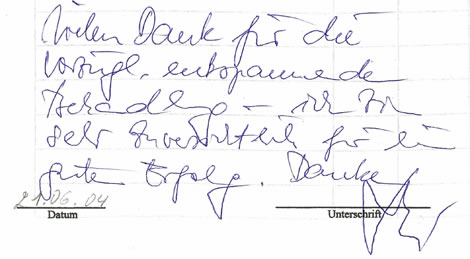 Vielen Dank für die
vorzügl. entspannende
Behandlung – ich bin
sehr zuversichtlich für ein
guten Erfolg. Danke
21.06.04
Datum Unterschrift